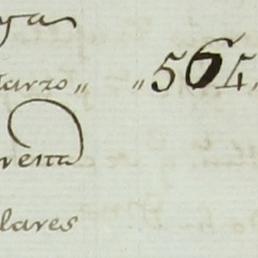 ga
arzo „ „ 564 „
renta
lares